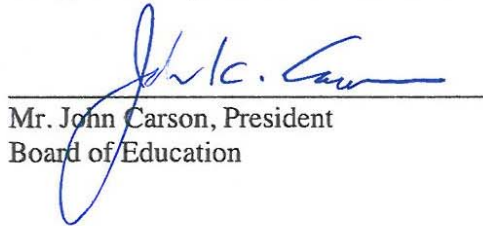 John C. Carson
Mr. John Carson, President
Board of Education